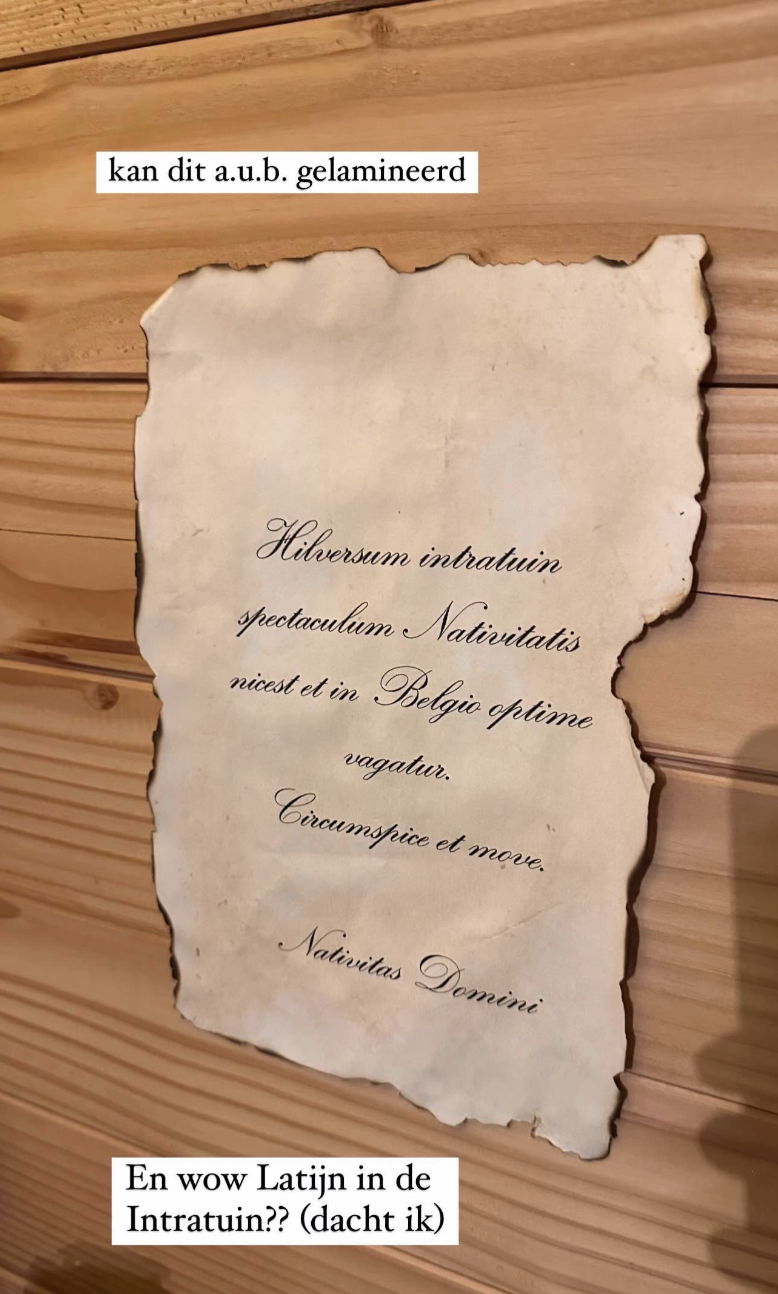 kan dit a.u.b. gelamineerd
Hilversum intratuin
spectaculum Nativitatis
nicest et in Belgio optime
vagatur.
Circumspice et move.
Nativitas Domini
En wow Latijn in de
Intratuin?? (dacht ik)